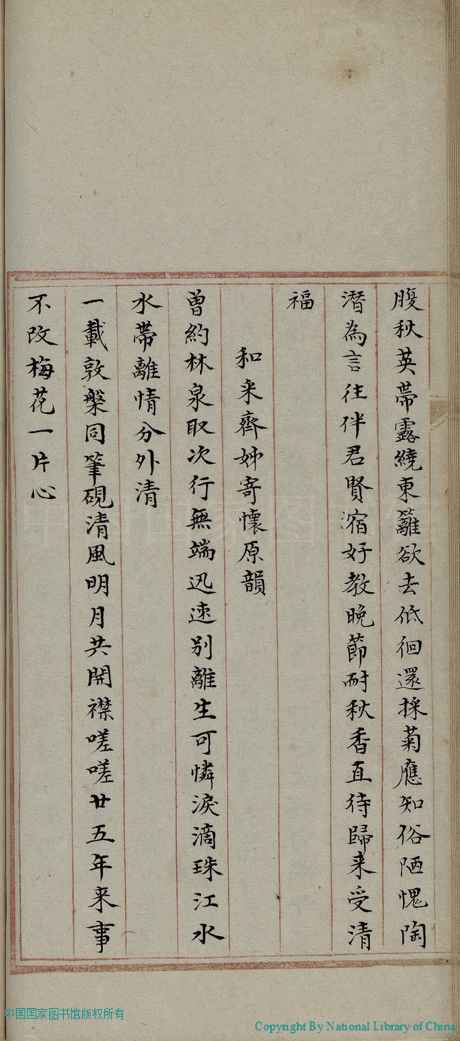 腹秋英帶露繞東籬欲去低徊還採菊應知俗陋愧陶
潛為言往伴君賢濶好教晚節耐秋香直待歸来受清
福
和来齊姊寄懷原韻
曽約林泉取次行無端迅速別離生可憐淚滴珠江水
水帶離情分外清
一載敦槃同筆硯清風明月共開襟嗟嗟廿五年来事
不改梅花一片心
中国国家图书馆版权所有
Copyright By National Library of China